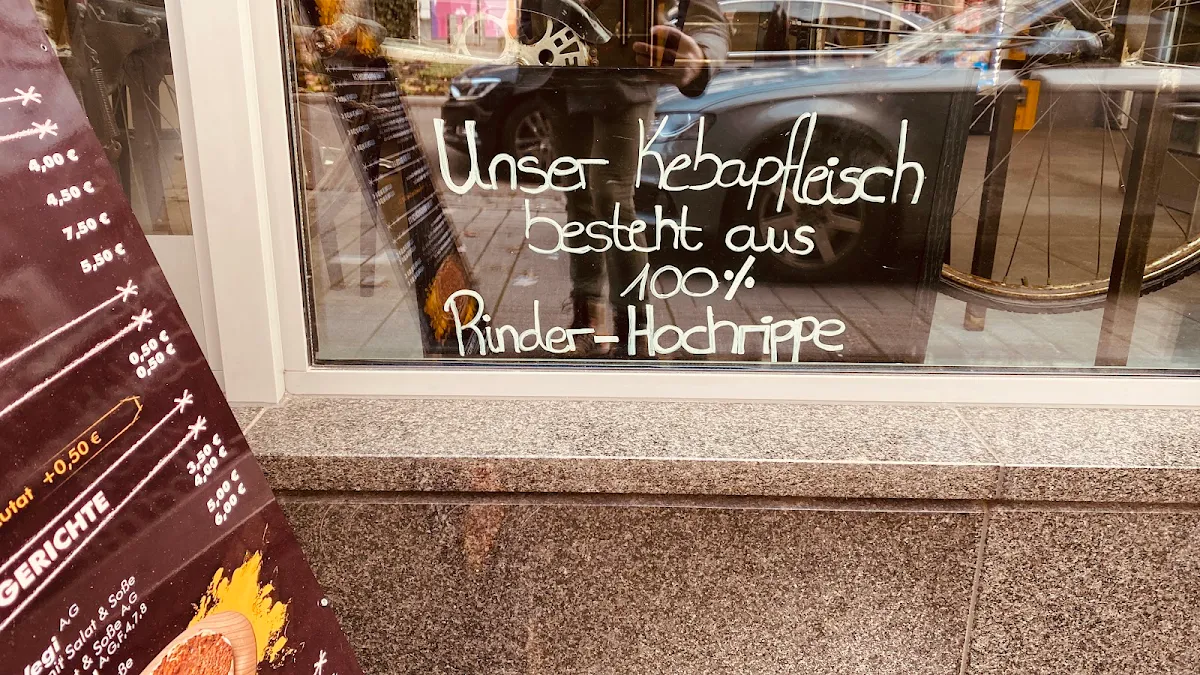 Unser Kebapfleisch
besteht aus
100%
Rinder-Hochrippe
4,00 €
4,50 €
7,50 €
5,50 €
0,50 €
0,50 €
utat +0,50 €
3,50 €
4,00 €
5,00 €
6,00 €
GERICHTE
Vegi A,G
mit Salat & Soße
t & Soße A,G
A,G,F,4,7,8
ße